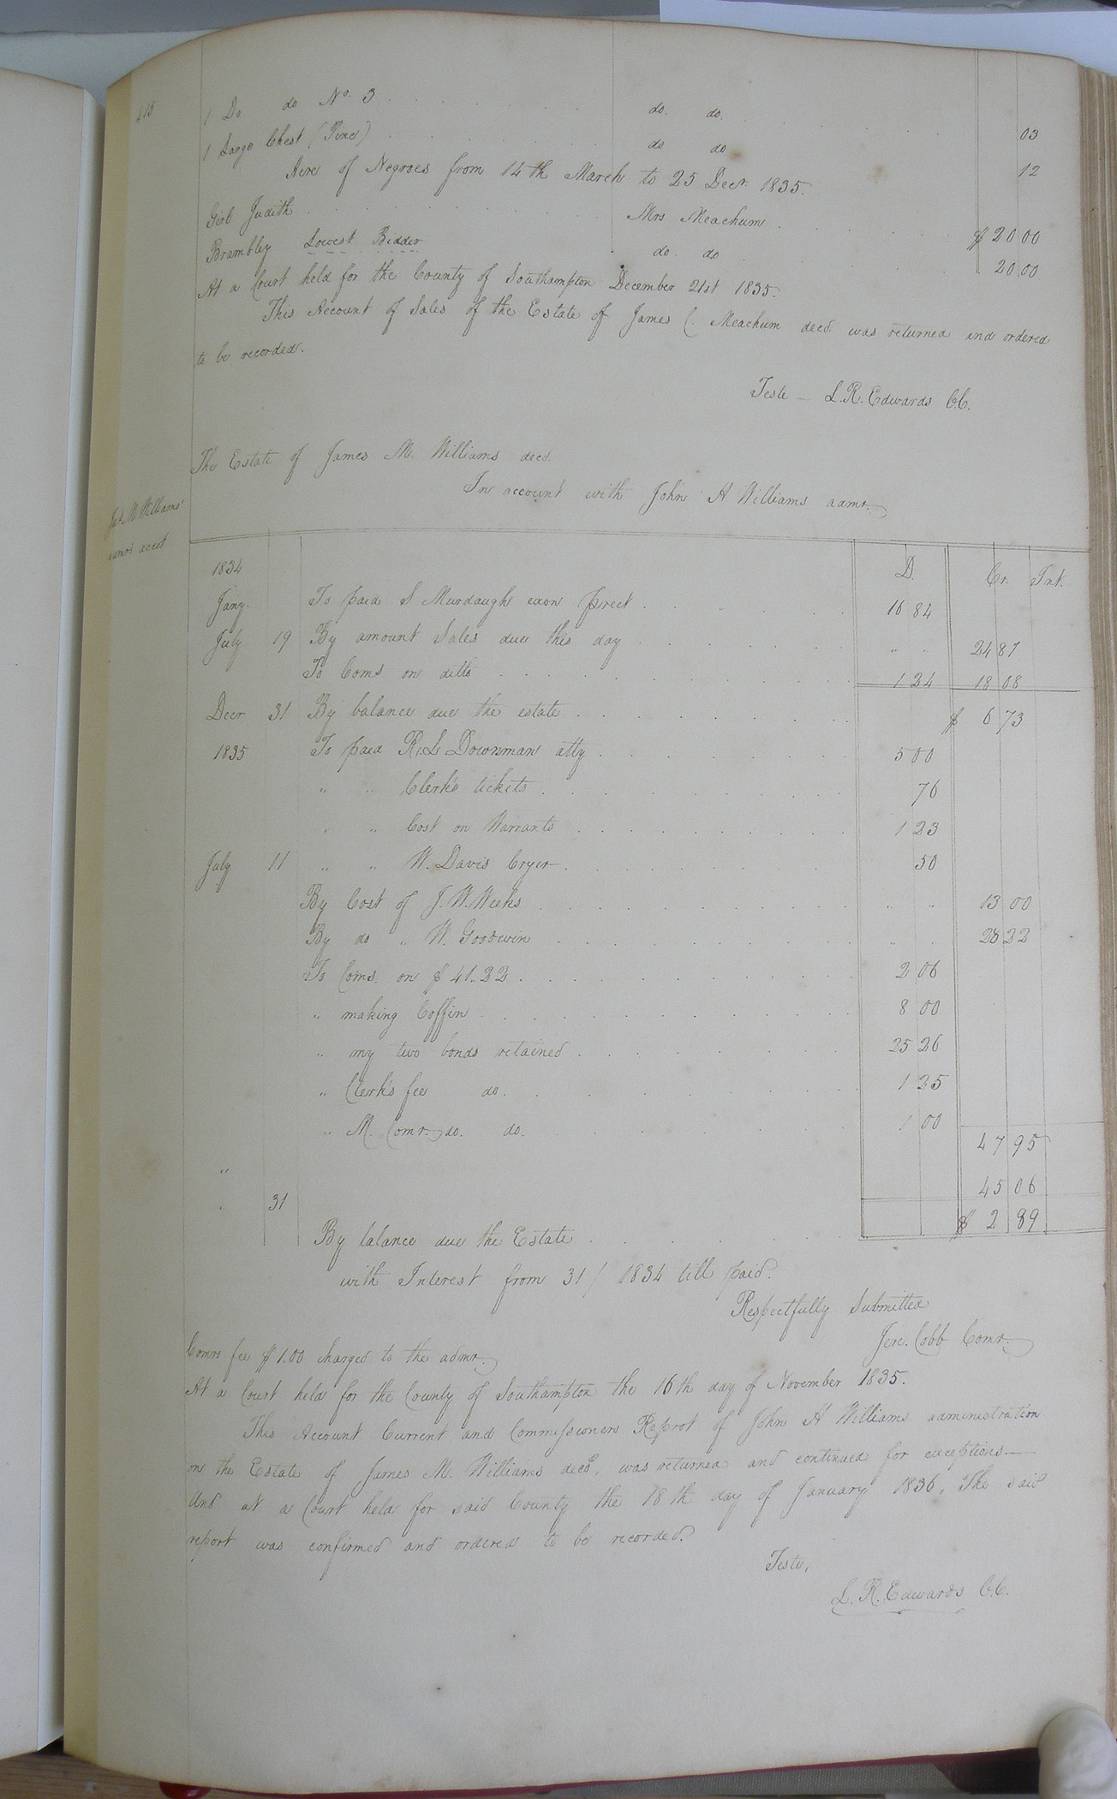 1 Do do No. 3 . . . do. do. . . . 03
1 Large Chest (Pine) . . . do do . . . 12
Hire of Negroes from 14th March to 25 Decr. 1835.
Girl Judith . . . Mrs Meachum . . . $ 20 00
Brambley Lowest Bidder . . . do. do . . . 20 00
At a Court held for the County of Southampton December 21st 1835.
This Account of Sales of the Estate of James C. Meachum decd. was returned and ordered
to be recorded.
Teste — L. R. Edwards C.C.
The Estate of James M. Williams decd.
In account with John A Williams admr.
Jas. M Williams'
admr's acct
1834 D. Cr. Int.
Jany. To paid S Murdaugh exon prect . . . 16 84
July 19 By amount Sales due this day . . . " " 24 87
To Coms on ditto . . . 1 24 18 08
Decr 31 By balance due the estate . . . $ 6 73
1835 To paid R. L Downman atty . . . 5 00
" " Clerk's tickets . . . 76
" " Cost on Warrants . . . 1 23
July 11 " " W. Davis Cryer . . . 50
By Cost of J. W. Weeks . . . " " 13 00
By do " W. Goodwin . . . " " 28 22
To Coms. on $ 41.22 . . . 2 06
" making Coffin . . . 8 00
" my two bonds retained . . . 25 26
" Clerk's fee do. . . . 1 25
" M. Comr. do. do. . . . 1 00
47 95
"
" 31 45 06
By balance due the Estate . . . $ 2 89
with Interest from 31 / 1834 till paid.
Respectfully Submitted
Jere. Cobb Comr.
Comrs fee $ 1.00 charged to the admr.
At a Court held for the County of Southampton the 16th day of November 1835.
This Account Current and Commissioners Reprot of John A Williams administration
on the Estate of James M. Williams decd. was returned and continued for exceptions—
And at a Court held for said County the 18th day of January 1836, The said
report was confirmed and ordered to be recorded.
Teste,
L. R. Edwards C.C.